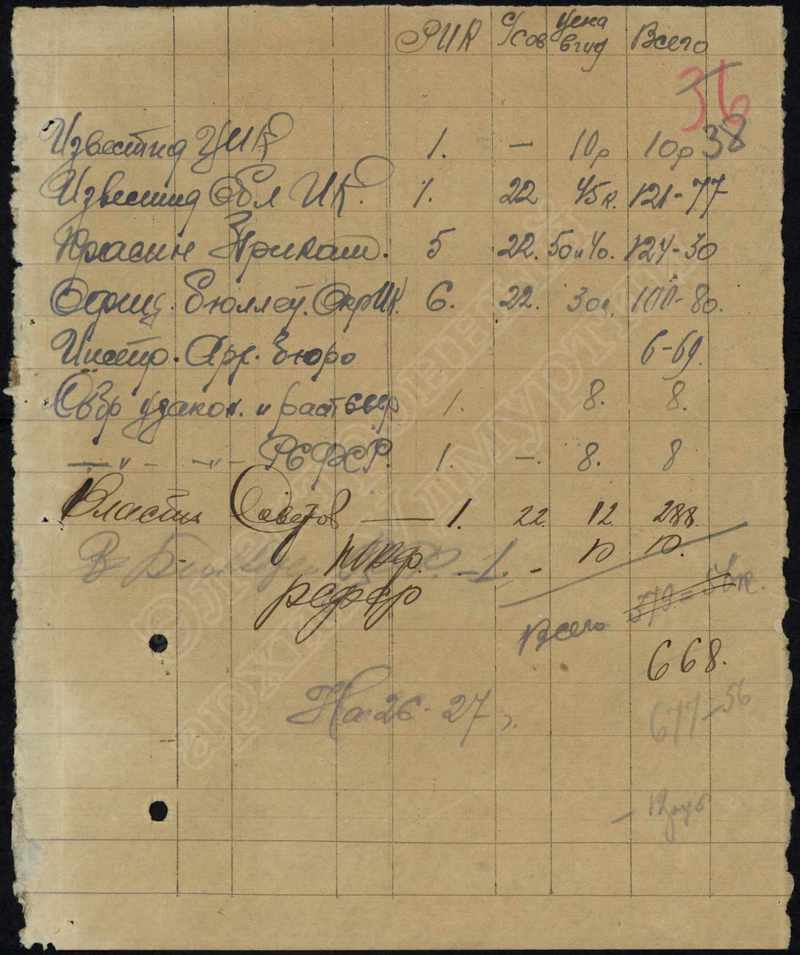 РИК с/сов цена в год Всего
36
Известия ЦИК 1. — 10р 10р 38
Известия Обл ИК. 1. 22 45к. 121-77
Красин Зрикат. 5 22. 50 и 40. 124-30
Офиц. Бюллет. Окр ИК. 6. 22. 30к. 100-80.
Инстр. Арх. Бюро 6-69.
Обзр узакон. и расп 1. 8. 8.
—"— —"— РСФСР. 1. —. 8. 8
Власть Советов — 1. 22. 12 288.
В НКФ. — 1. - 10 10.
РСФСР
Всего 579-56к.
668.
На 26-27 г.
677-56